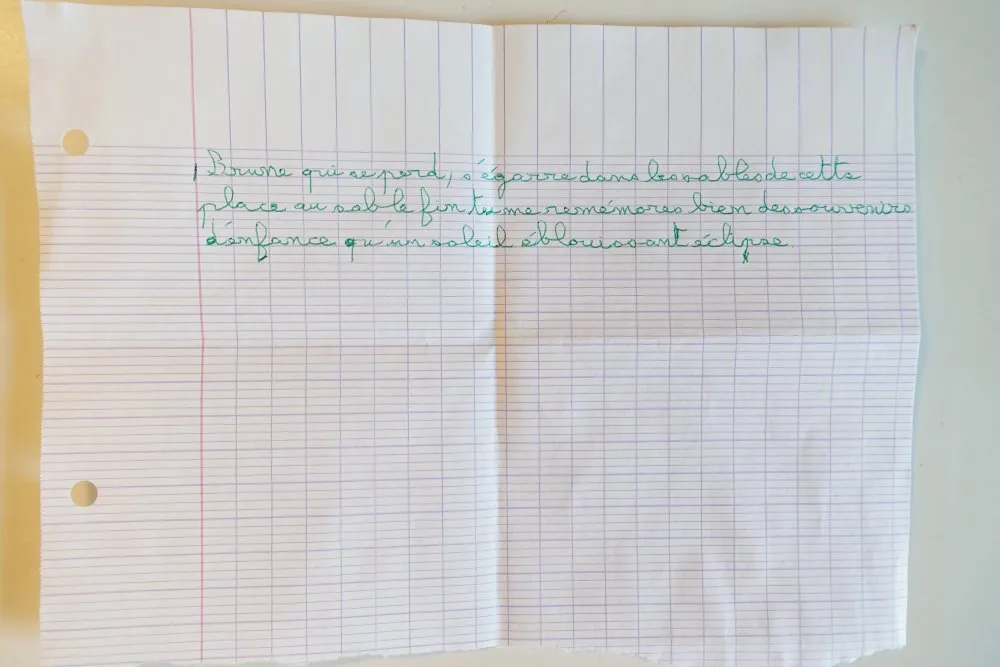 Brune qui se perd, s'égarre dans les sables de cette
place au sable fin tu me remémores bien des souvenirs
d'enfance qu'un soleil éblouissant éclipse